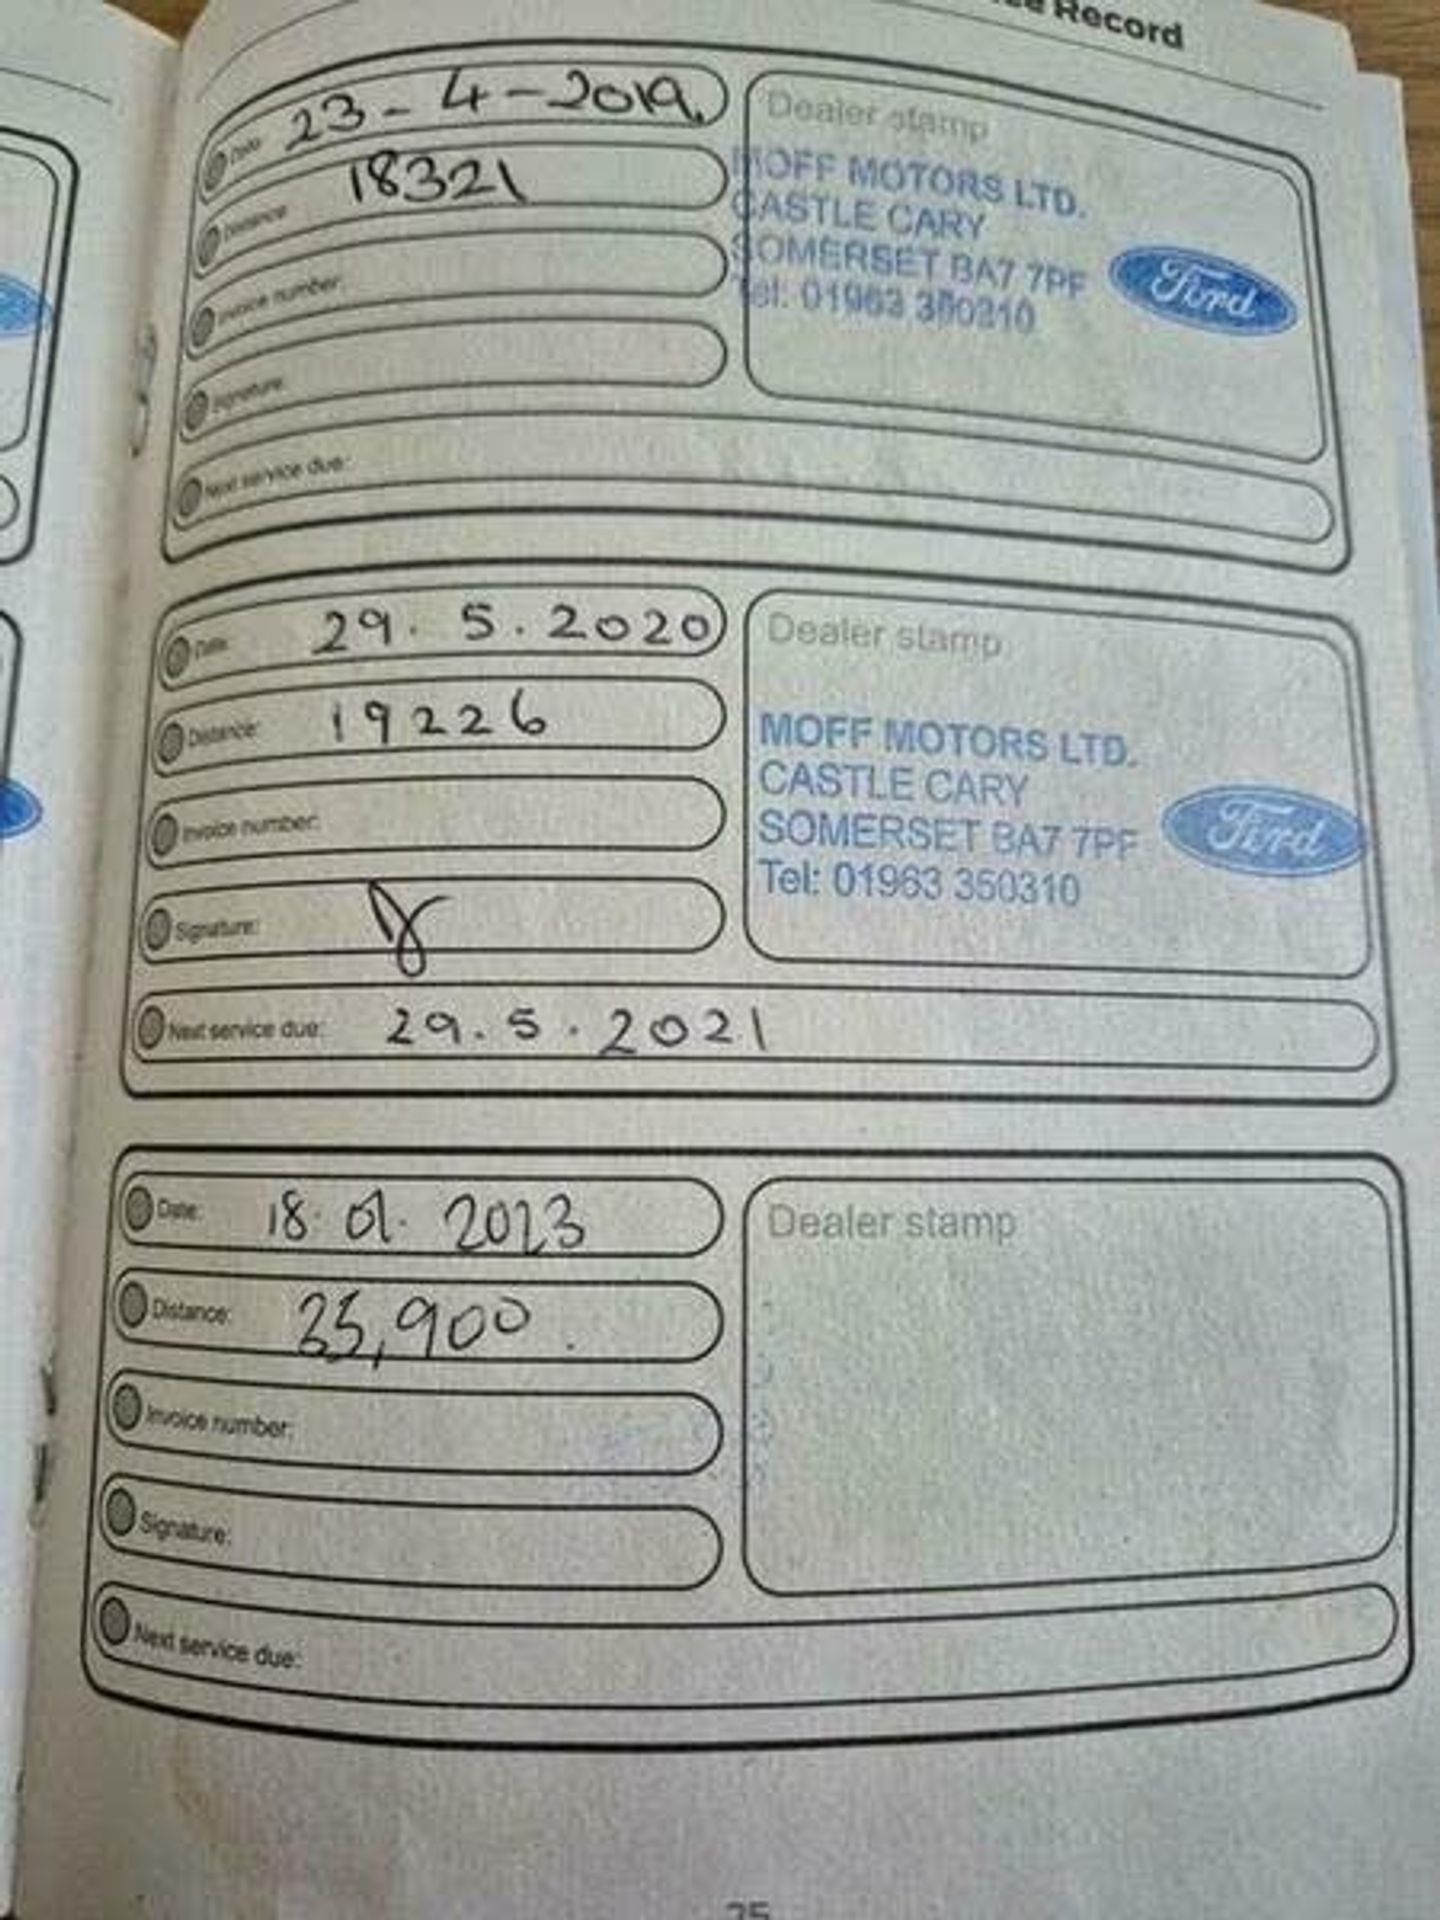 Record
Date: 23-4-2019.
Distance: 18321
Invoice number:
Signature:
Next service due:
Dealer stamp
MOFF MOTORS LTD.
CASTLE CARY
SOMERSET BA7 7PF
Tel: 01963 350310
Ford
Date: 29.5.2020
Distance: 19226
Invoice number:
Signature:
Next service due: 29.5.2021
Dealer stamp
MOFF MOTORS LTD.
CASTLE CARY
SOMERSET BA7 7PF
Tel: 01963 350310
Ford
Date: 18.01.2023
Distance: 25,900.
Invoice number:
Signature:
Next service due:
Dealer stamp